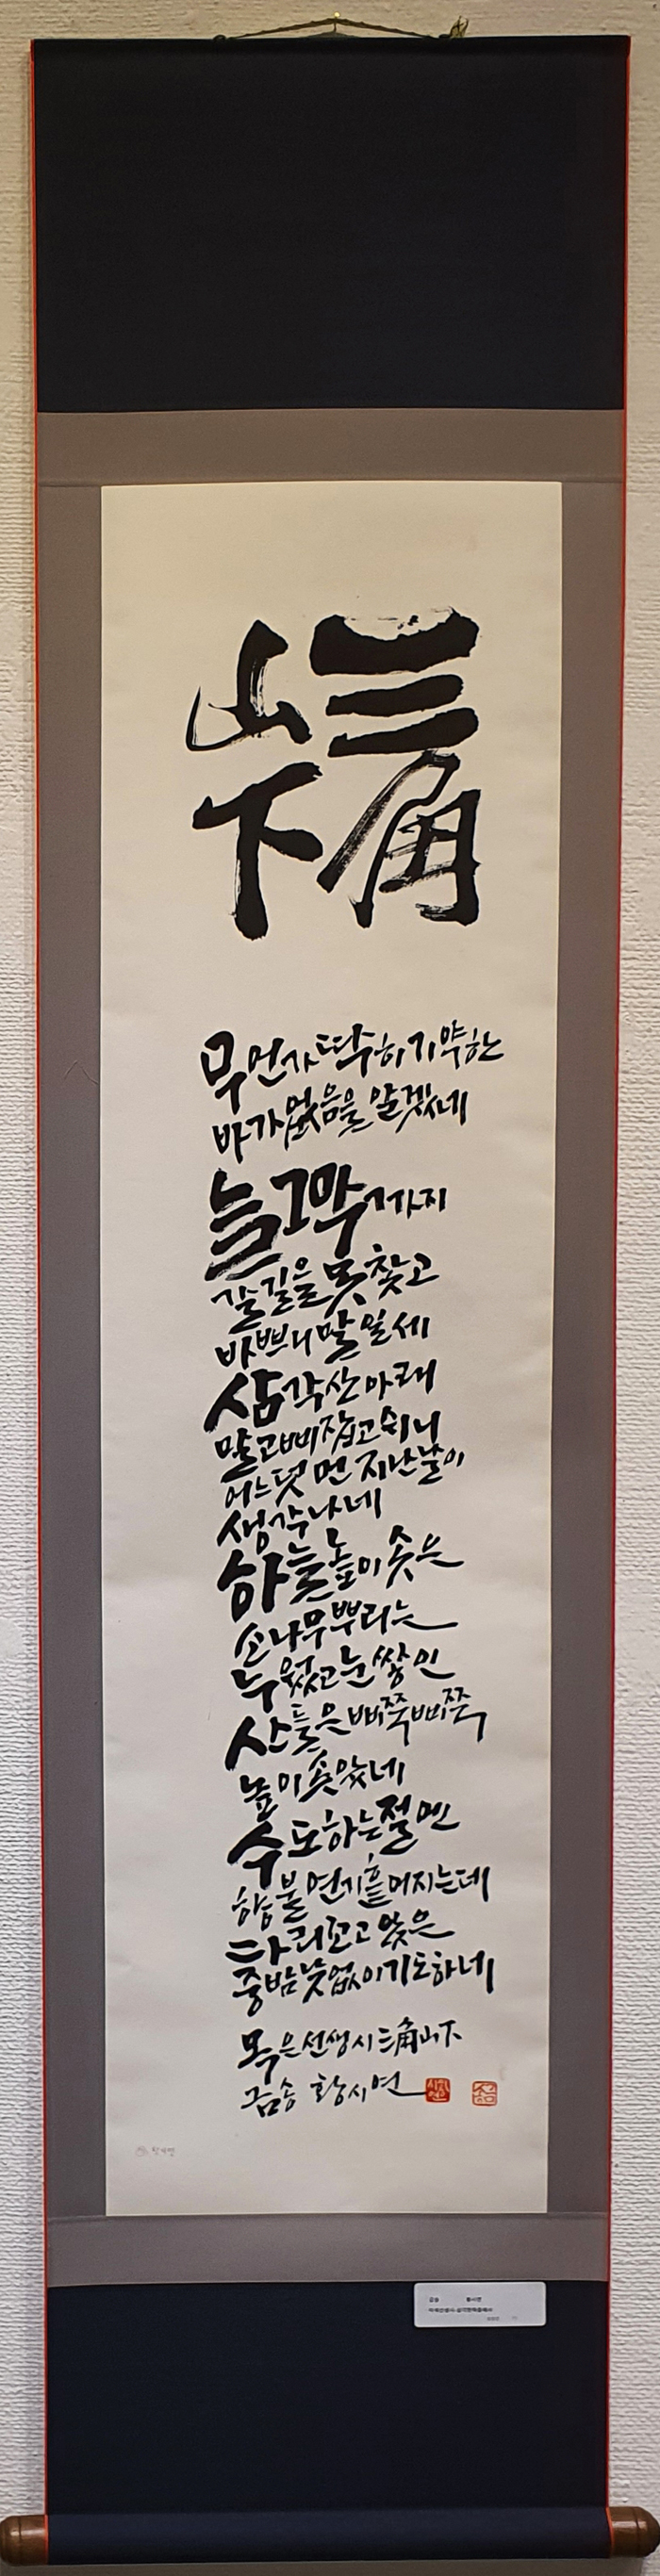 三角
山下
무언가 딱히 기약한
바가 없음을 알겠네
늘그막까지
갈길을 못찾고
바쁘니 말일세
삼각산 아래
말고삐 잡고 쉬니
어느덧 먼 지난날이
생각나네
하늘높이 솟은
소나무 뿌리는
누웠고 눈쌓인
산들은 삐쭉삐쭉
높이 솟았네
수도하는 절엔
향불 연기 흩어지는데
다리꼬고 앉은
중 밤낮없이 기도하네
목은선생시 三角山下
금송 황시연